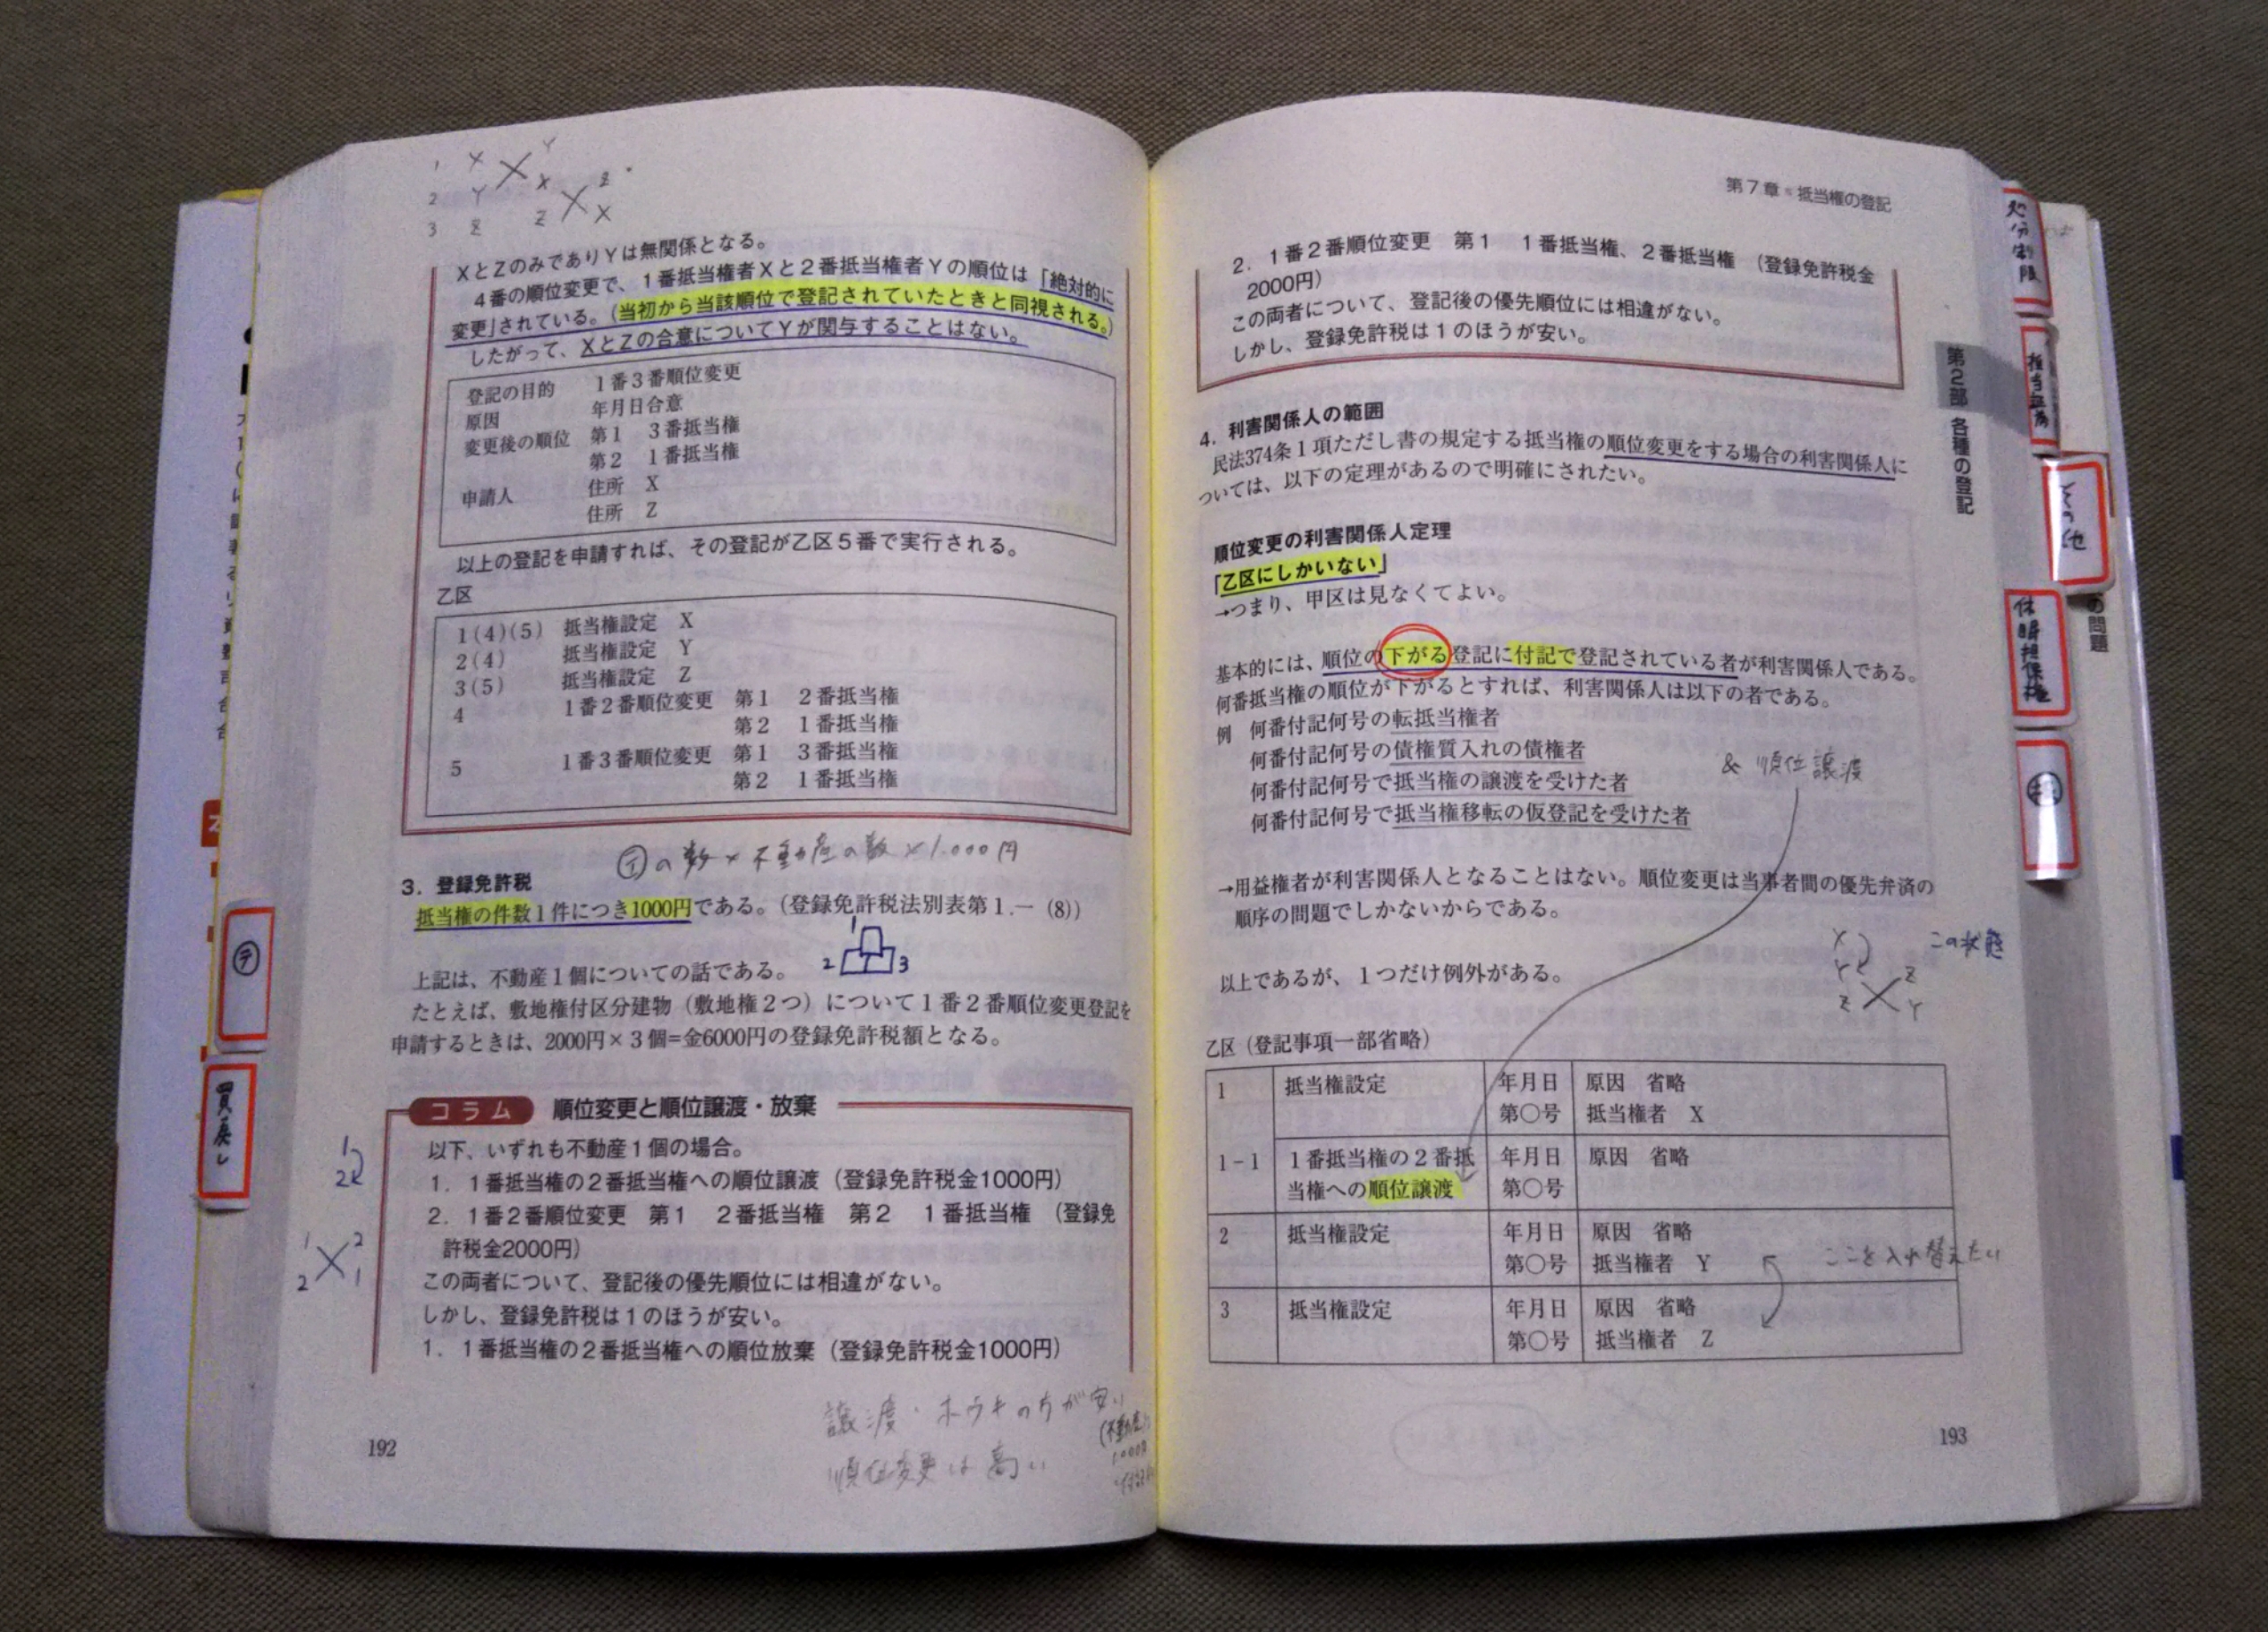 1 X Y
2 Y X Z
3 Z Z X
XとZのみでありYは無関係となる。
4番の順位変更で、1番抵当権者Xと2番抵当権者Yの順位は「絶対的に
変更」されている。(当初から当該順位で登記されていたときと同視される。)
したがって、XとZの合意についてYが関与することはない。
登記の目的 1番3番順位変更
原因 年月日合意
変更後の順位 第1 3番抵当権
第2 1番抵当権
申請人 住所 X
住所 Z
以上の登記を申請すれば、その登記が乙区5番で実行される。
乙区
1(4)(5) 抵当権設定 X
2(4) 抵当権設定 Y
3(5) 抵当権設定 Z
4 1番2番順位変更 第1 2番抵当権
第2 1番抵当権
5 1番3番順位変更 第1 3番抵当権
第2 1番抵当権
㋑の数×不動産の数×1.000円
3.登録免許税
抵当権の件数1件につき1000円である。(登録免許税法別表第1.一(8))
1
2 3
上記は、不動産1個についての話である。
たとえば、敷地権付区分建物(敷地権2つ)について1番2番順位変更登記を
申請するときは、2000円×3個=金6000円の登録免許税額となる。
コラム 順位変更と順位譲渡・放棄
以下、いずれも不動産1個の場合。
1.1番抵当権の2番抵当権への順位譲渡(登録免許税金1000円)
2.1番2番順位変更 第1 2番抵当権 第2 1番抵当権 (登録免
許税金2000円)
この両者について、登記後の優先順位には相違がない。
しかし、登録免許税は1のほうが安い。
1.1番抵当権の2番抵当権への順位放棄(登録免許税金1000円)
1
2
1 2
2 1
譲渡・ホウキの方が安い
順位変更は高い
192
㋢
買戻し
第7章 抵当権の登記
2.1番2番順位変更 第1 1番抵当権、2番抵当権 (登録免許税金
2000円)
この両者について、登記後の優先順位には相違がない。
しかし、登録免許税は1のほうが安い。
4.利害関係人の範囲
民法374条1項ただし書の規定する抵当権の順位変更をする場合の利害関係人に
ついては、以下の定理があるので明確にされたい。
順位変更の利害関係人定理
「乙区にしかいない」
→つまり、甲区は見なくてよい。
基本的には、順位の下がる登記に付記で登記されている者が利害関係人である。
何番抵当権の順位が下がるとすれば、利害関係人は以下の者である。
例 何番付記何号の転抵当権者
何番付記何号の債権質入れの債権者
何番付記何号で抵当権の譲渡を受けた者
何番付記何号で抵当権移転の仮登記を受けた者
& 順位譲渡
→用益権者が利害関係人となることはない。順位変更は当事者間の優先弁済の
順序の問題でしかないからである。
以上であるが、1つだけ例外がある。
X
Y Z
Z Y
この状態
乙区(登記事項一部省略)
1 抵当権設定 年月日 原因 省略
第○号 抵当権者 X
1-1 1番抵当権の2番抵 年月日 原因 省略
当権への順位譲渡 第○号
2 抵当権設定 年月日 原因 省略
第○号 抵当権者 Y
ここを入れ替えたい
3 抵当権設定 年月日 原因 省略
第○号 抵当権者 Z
193
第2部 各種の登記
処分制限
その他
休眠担保権
の問題